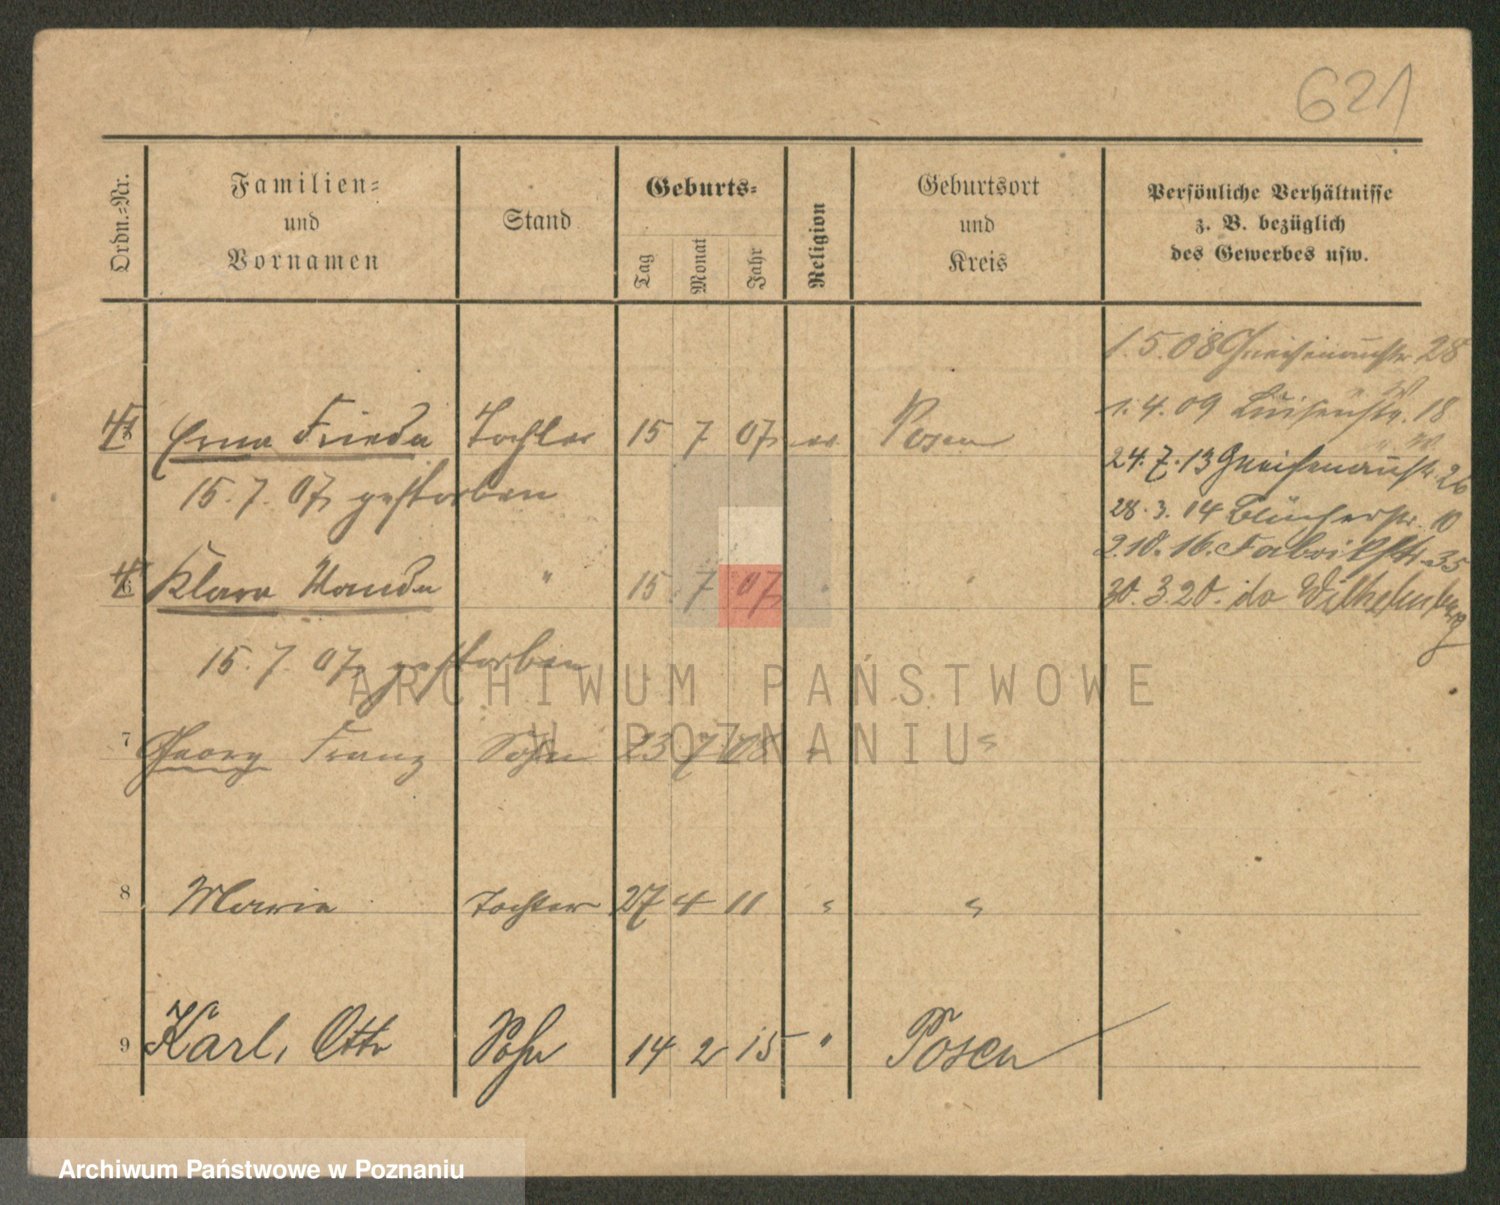 621
Ordn.-Nr.
Familien-
und
Vornamen
Stand
Geburts-
Tag
Monat
Jahr
Religion
Geburtsort
und
Kreis
Persönliche Verhältnisse
z. B. bezüglich
des Gewerbes usw.
1.5.08 Gneisenaustr. 28
1.4.09 Luisenstr. 18
24.7.13 Gneisenaustr. 26
28.3.14 Blücherstr. 10
2.10.16. Fabrikstr. 35
30.3.20. do Wilhelmberg
Erna Frieda Tochter 15 7 07 Posen
15.7.07 gestorben
6 Klara Wanda " 15 7 07 "
15.7.07 gestorben
7 Georg Franz Sohn 23 7 08 "
8 Marie Tochter 27 4 11 " "
9 Karl, Otto Sohn 14 2 15 " Posen
ARCHIWUM PAŃSTWOWE
W POZNANIU
Archiwum Państwowe w Poznaniu